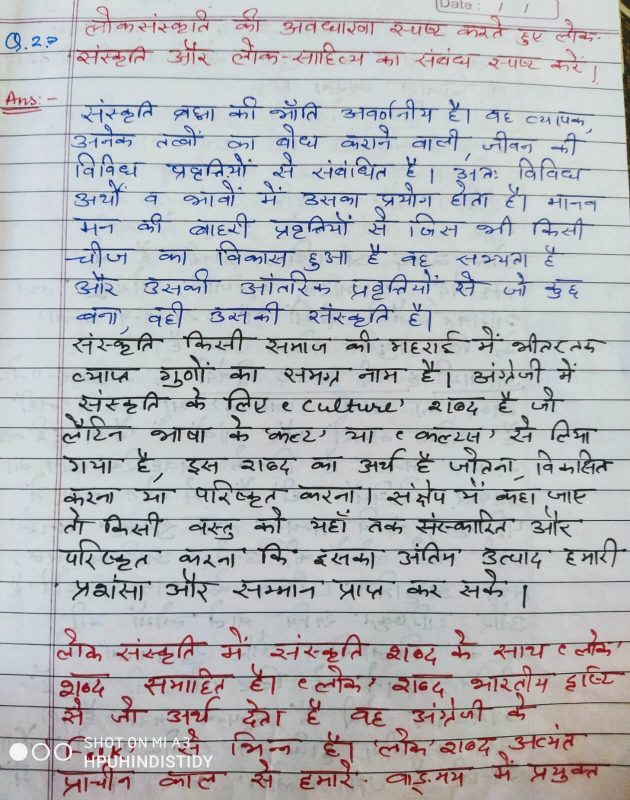 Date: / /
Q.2→ लोकसंस्कृति की अवधारणा स्पष्ट करते हुए लोक-
संस्कृति और लोक-साहित्य का संबंध स्पष्ट करें।
Ans:- संस्कृति ब्रह्म की भाँति अवर्णनीय है। वह व्यापक,
अनेक तत्वों का बोध कराने वाली, जीवन की
विविध प्रवृत्तियों से संबंधित है। अतः विविध
अर्थों व भावों में उसका प्रयोग होता है। मानव
मन की बाहरी प्रवृत्तियों से जिस भी किसी
चीज का विकास हुआ है वह सभ्यता है
और उसकी आंतरिक प्रवृत्तियों से जो कुछ
बना, वही उसकी संस्कृति है।
संस्कृति किसी समाज की गहराई में भीतर तक
व्याप्त गुणों का समग्र नाम है। अंग्रेजी में
संस्कृति के लिए 'culture' शब्द है जो
लैटिन भाषा के 'कल्ट' या 'कल्टस' से लिया
गया है, इस शब्द का अर्थ है जोतना, विकसित
करना या परिष्कृत करना। संक्षेप में कहा जाए
तो किसी वस्तु को यहाँ तक संस्कारित और
परिष्कृत करना कि इसका अंतिम उत्पाद हमारी
प्रशंसा और सम्मान प्राप्त कर सके।
लोक संस्कृति में संस्कृति शब्द के साथ 'लोक'
शब्द समाहित है। 'लोक' शब्द भारतीय दृष्टि
से जो अर्थ देता है वह अंग्रेजी के
से भिन्न है। 'लोक' शब्द अत्यंत
प्राचीन काल से हमारे वाङ्मय में प्रयुक्त
SHOT ON MI A3
HPUHINDISTIDY